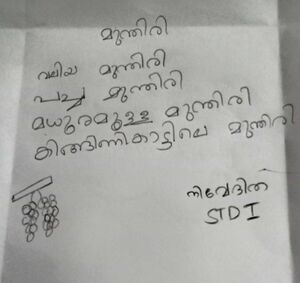 മുന്തിരി
വലിയ മുന്തിരി
പച്ച മുന്തിരി
മധുരമുള്ള മുന്തിരി
കിങ്ങിണികാട്ടിലെ മുന്തിരി
നിവേദിത
STD I